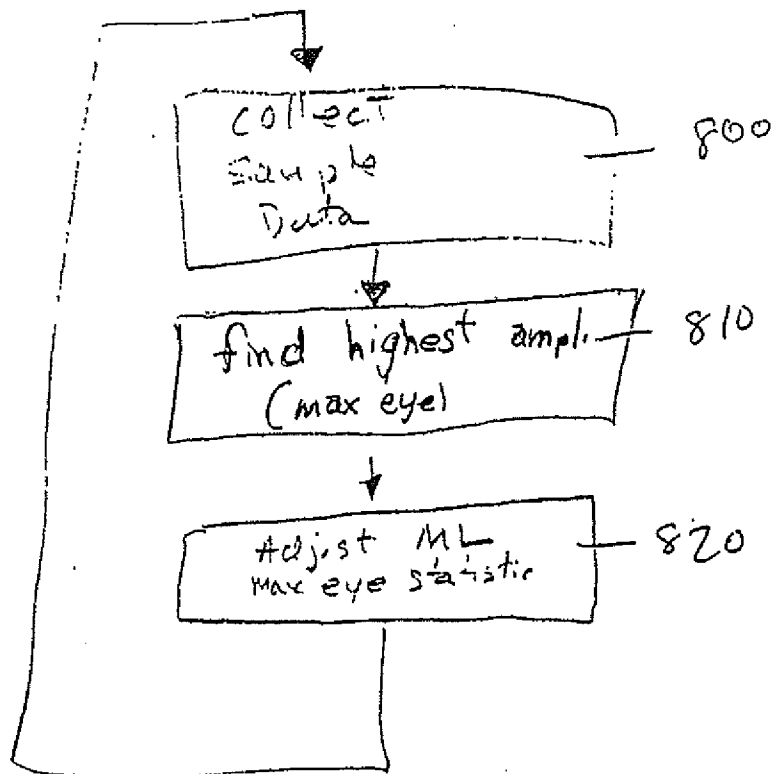 Collect
Sample
Data
800
find highest ampl.
(max eye)
810
Adjust ML
Max eye statistic
820